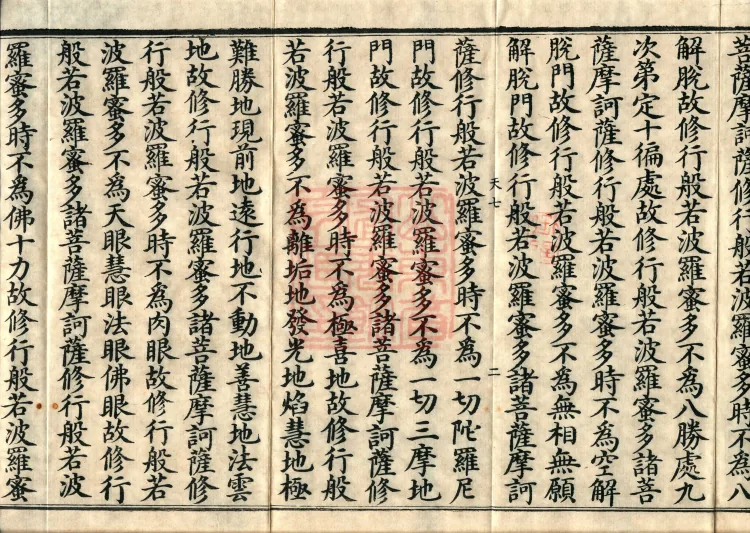 菩薩摩訶薩修行般若波羅蜜多時不為八
解脫故修行般若波羅蜜多不為八勝處九
次第定十徧處故修行般若波羅蜜多諸菩
薩摩訶薩修行般若波羅蜜多時不為空解
脫門故修行般若波羅蜜多不為無相無願
解脫門故修行般若波羅蜜多諸菩薩摩訶
天七 二
薩修行般若波羅蜜多時不為一切陀羅尼
門故修行般若波羅蜜多不為一切三摩地
門故修行般若波羅蜜多諸菩薩摩訶薩修
行般若波羅蜜多時不為極喜地故修行般
若波羅蜜多不為離垢地發光地焰慧地極
難勝地現前地遠行地不動地善慧地法雲
地故修行般若波羅蜜多諸菩薩摩訶薩修
行般若波羅蜜多時不為肉眼故修行般若
波羅蜜多不為天眼慧眼法眼佛眼故修行
般若波羅蜜多諸菩薩摩訶薩修行般若波
羅蜜多時不為佛十力故修行般若波羅蜜